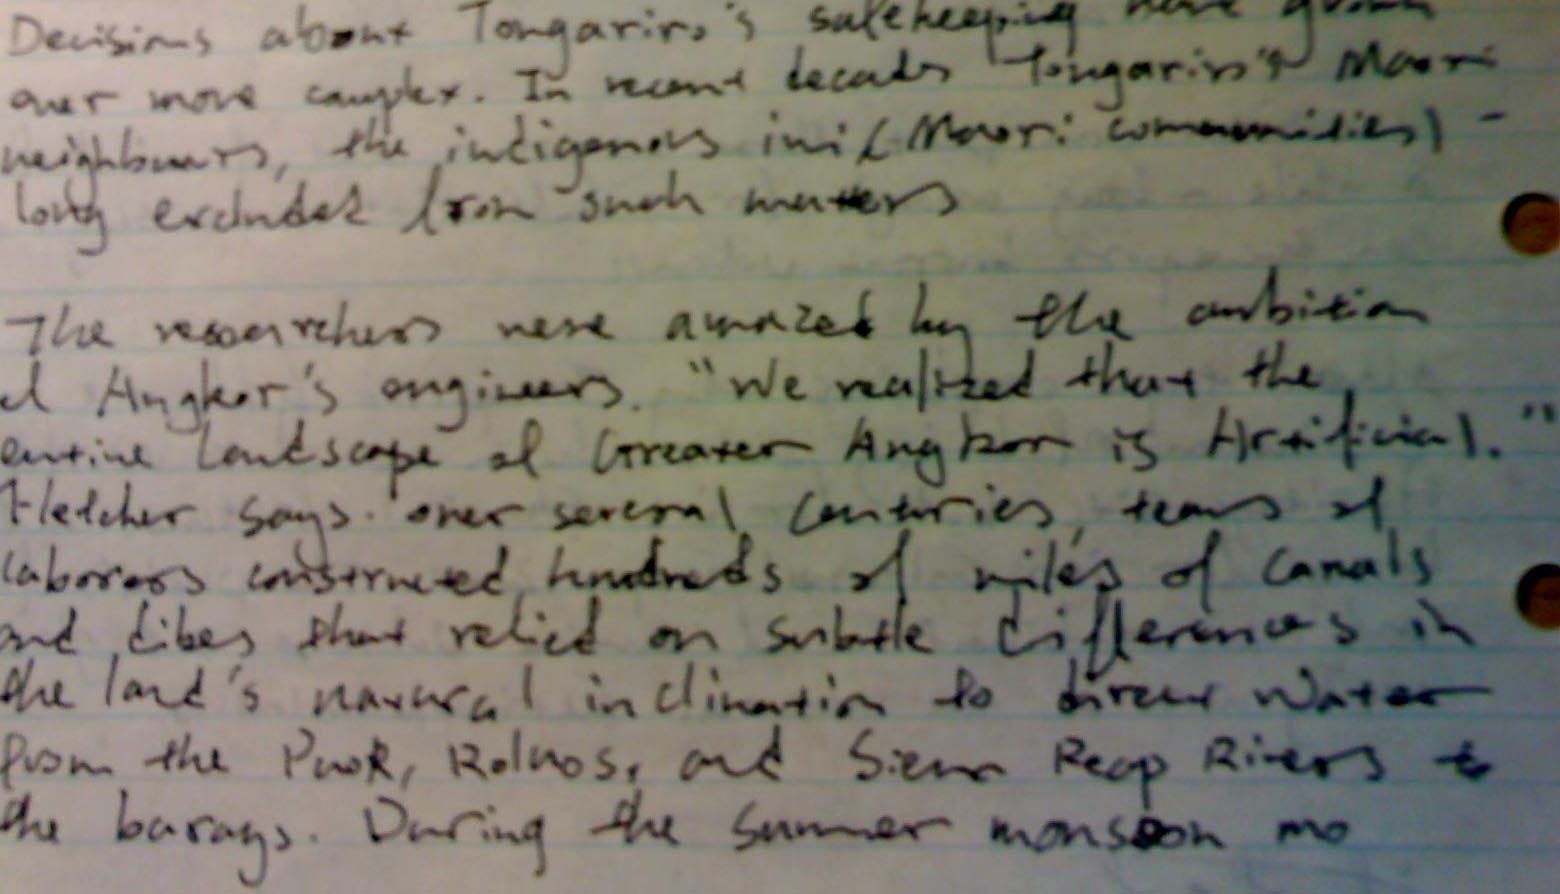 Decisions about Tongariro's safekeeping have grown
ever more complex. In recent decades Tongariro's Maori
neighbours, the indigenous iwi (Maori communities) -
long excluded from such matters
The researchers were amazed by the ambition
of Angkor's engineers. "We realized that the
entire landscape of Greater Angkor is Artificial."
Fletcher says. over several centuries, teams of
laborers constructed hundreds of miles of canals
and dikes that relied on subtle differences in
the land's natural inclination to direct water
from the Puok, Roluos, and Siem Reap Rivers to
the barays. During the summer monsoon mo